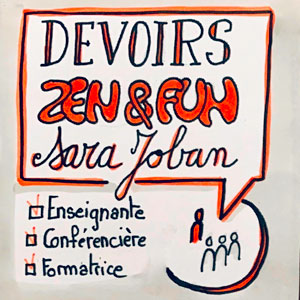 DEVOIRS
ZEN & FUN
Sara Joban
Enseignante
Conférencière
Formatrice